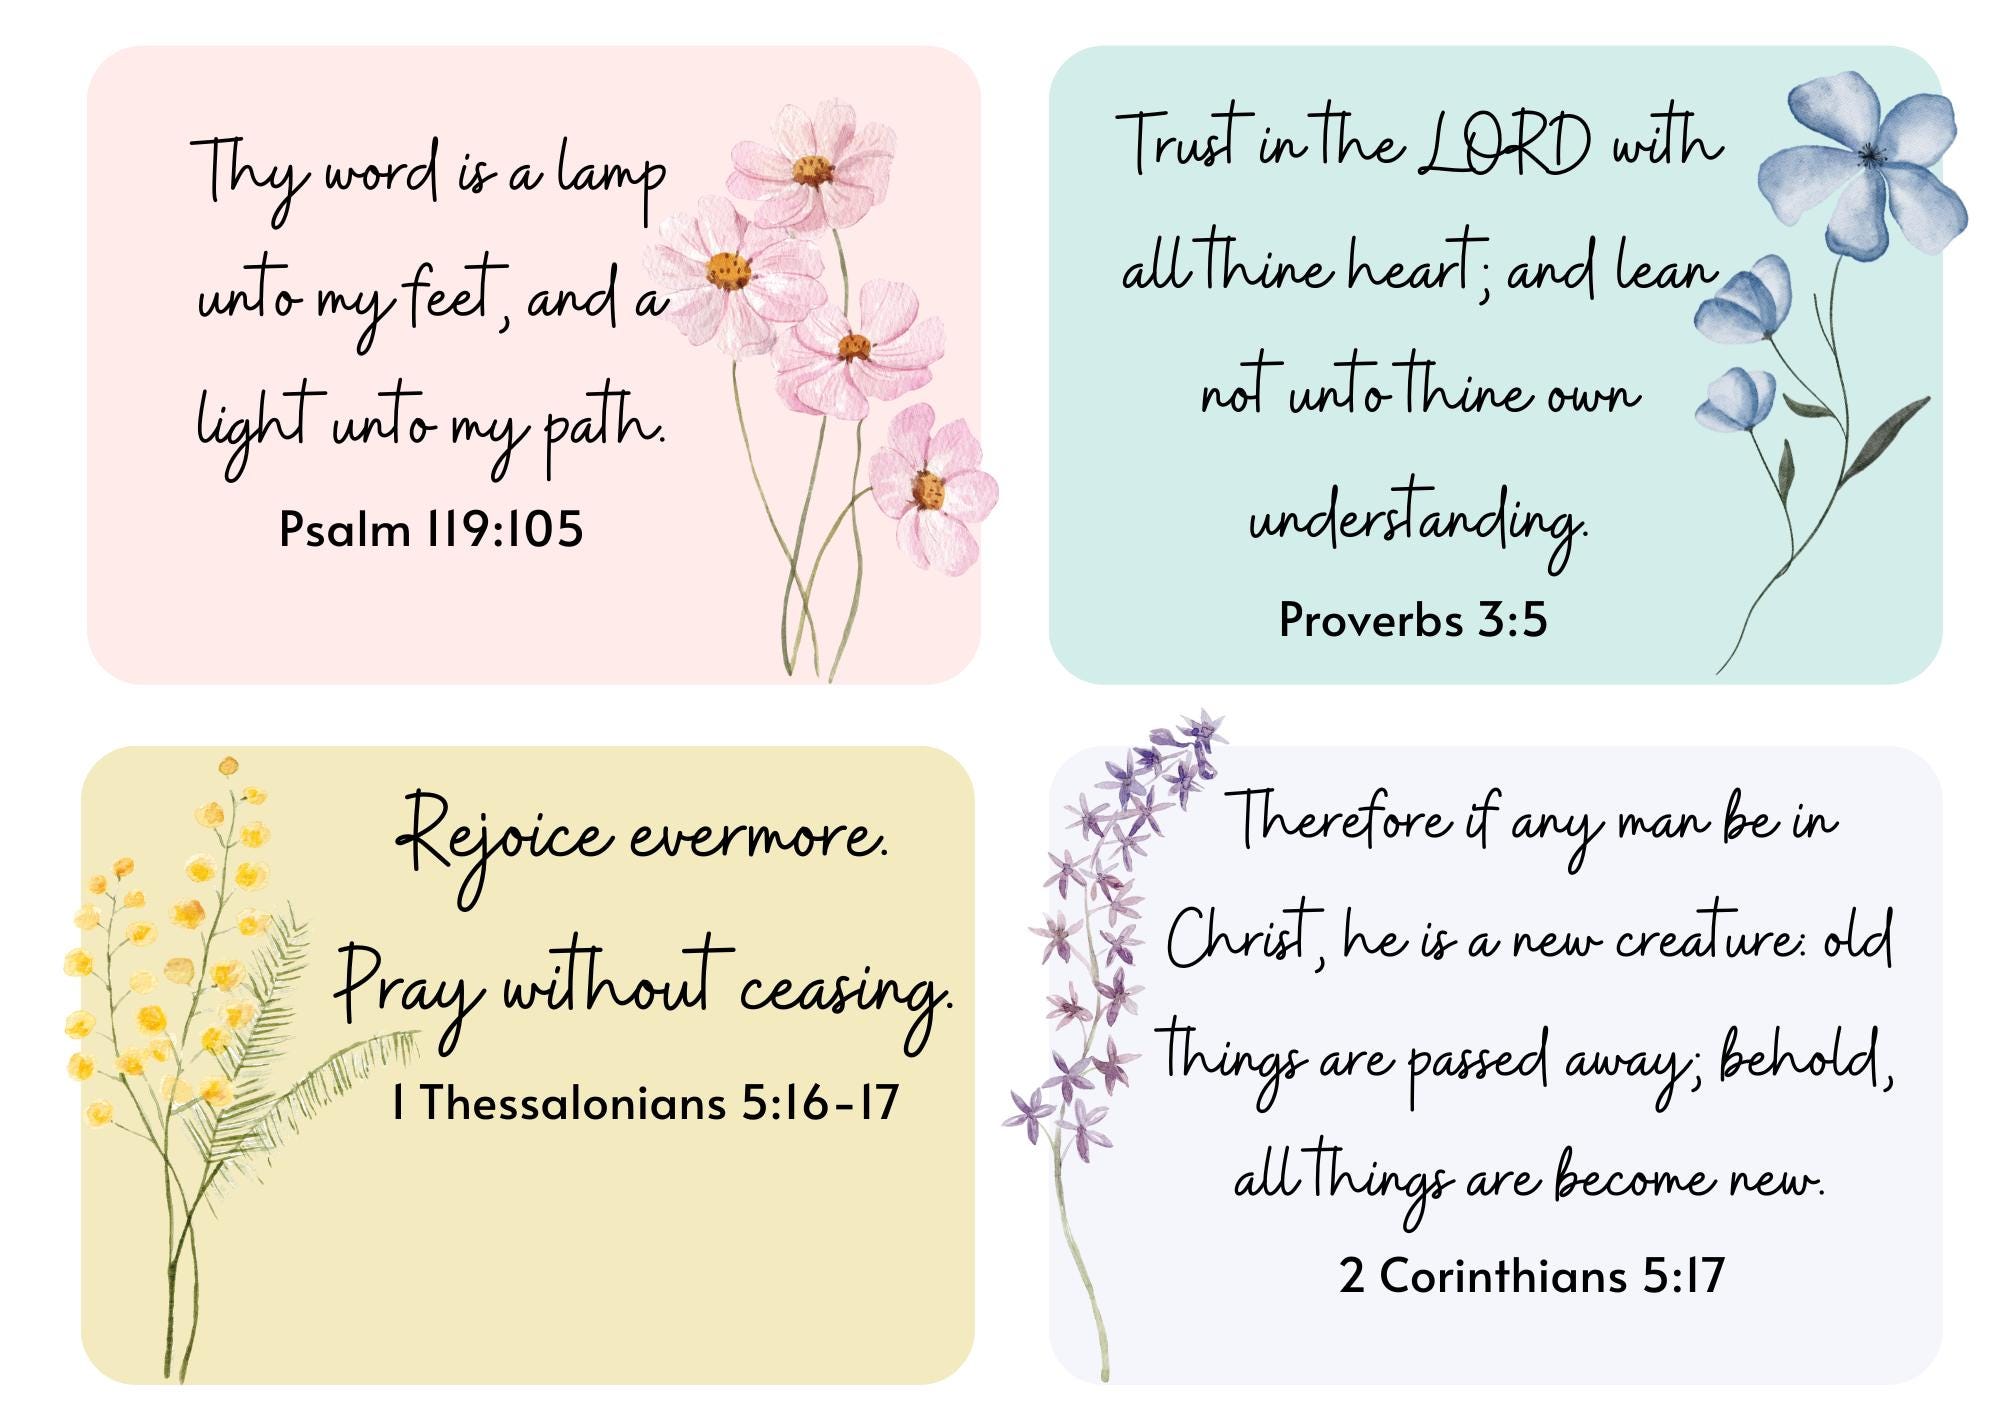 Thy word is a lamp
unto my feet, and a
light unto my path.
Psalm 119:105
Trust in the LORD with
all thine heart; and lean
not unto thine own
understanding.
Proverbs 3:5
Rejoice evermore.
Pray without ceasing.
1 Thessalonians 5:16-17
Therefore if any man be in
Christ, he is a new creature: old
things are passed away; behold,
all things are become new.
2 Corinthians 5:17